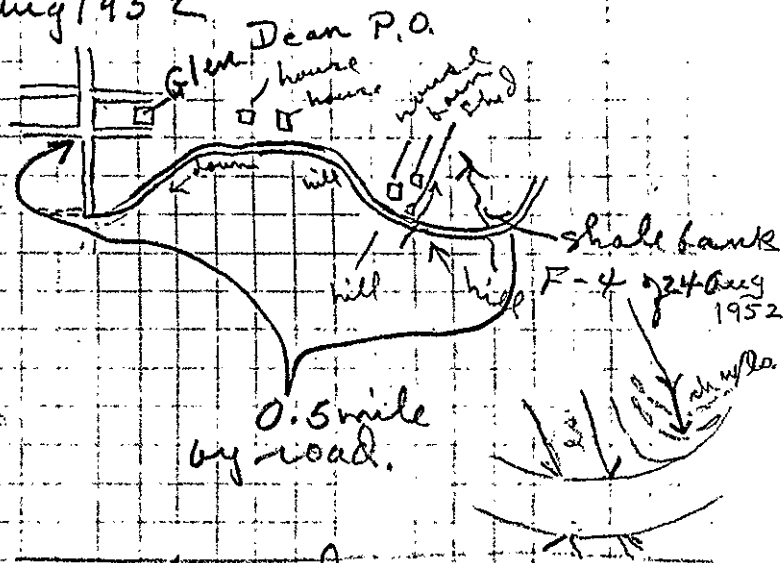 Aug 1952
Glen Dean P.O.
house
house
house
barn
shed
down
hill
hill
hill
shale bank
F-4 of 24 Aug
1952
0.5 mile
by road.